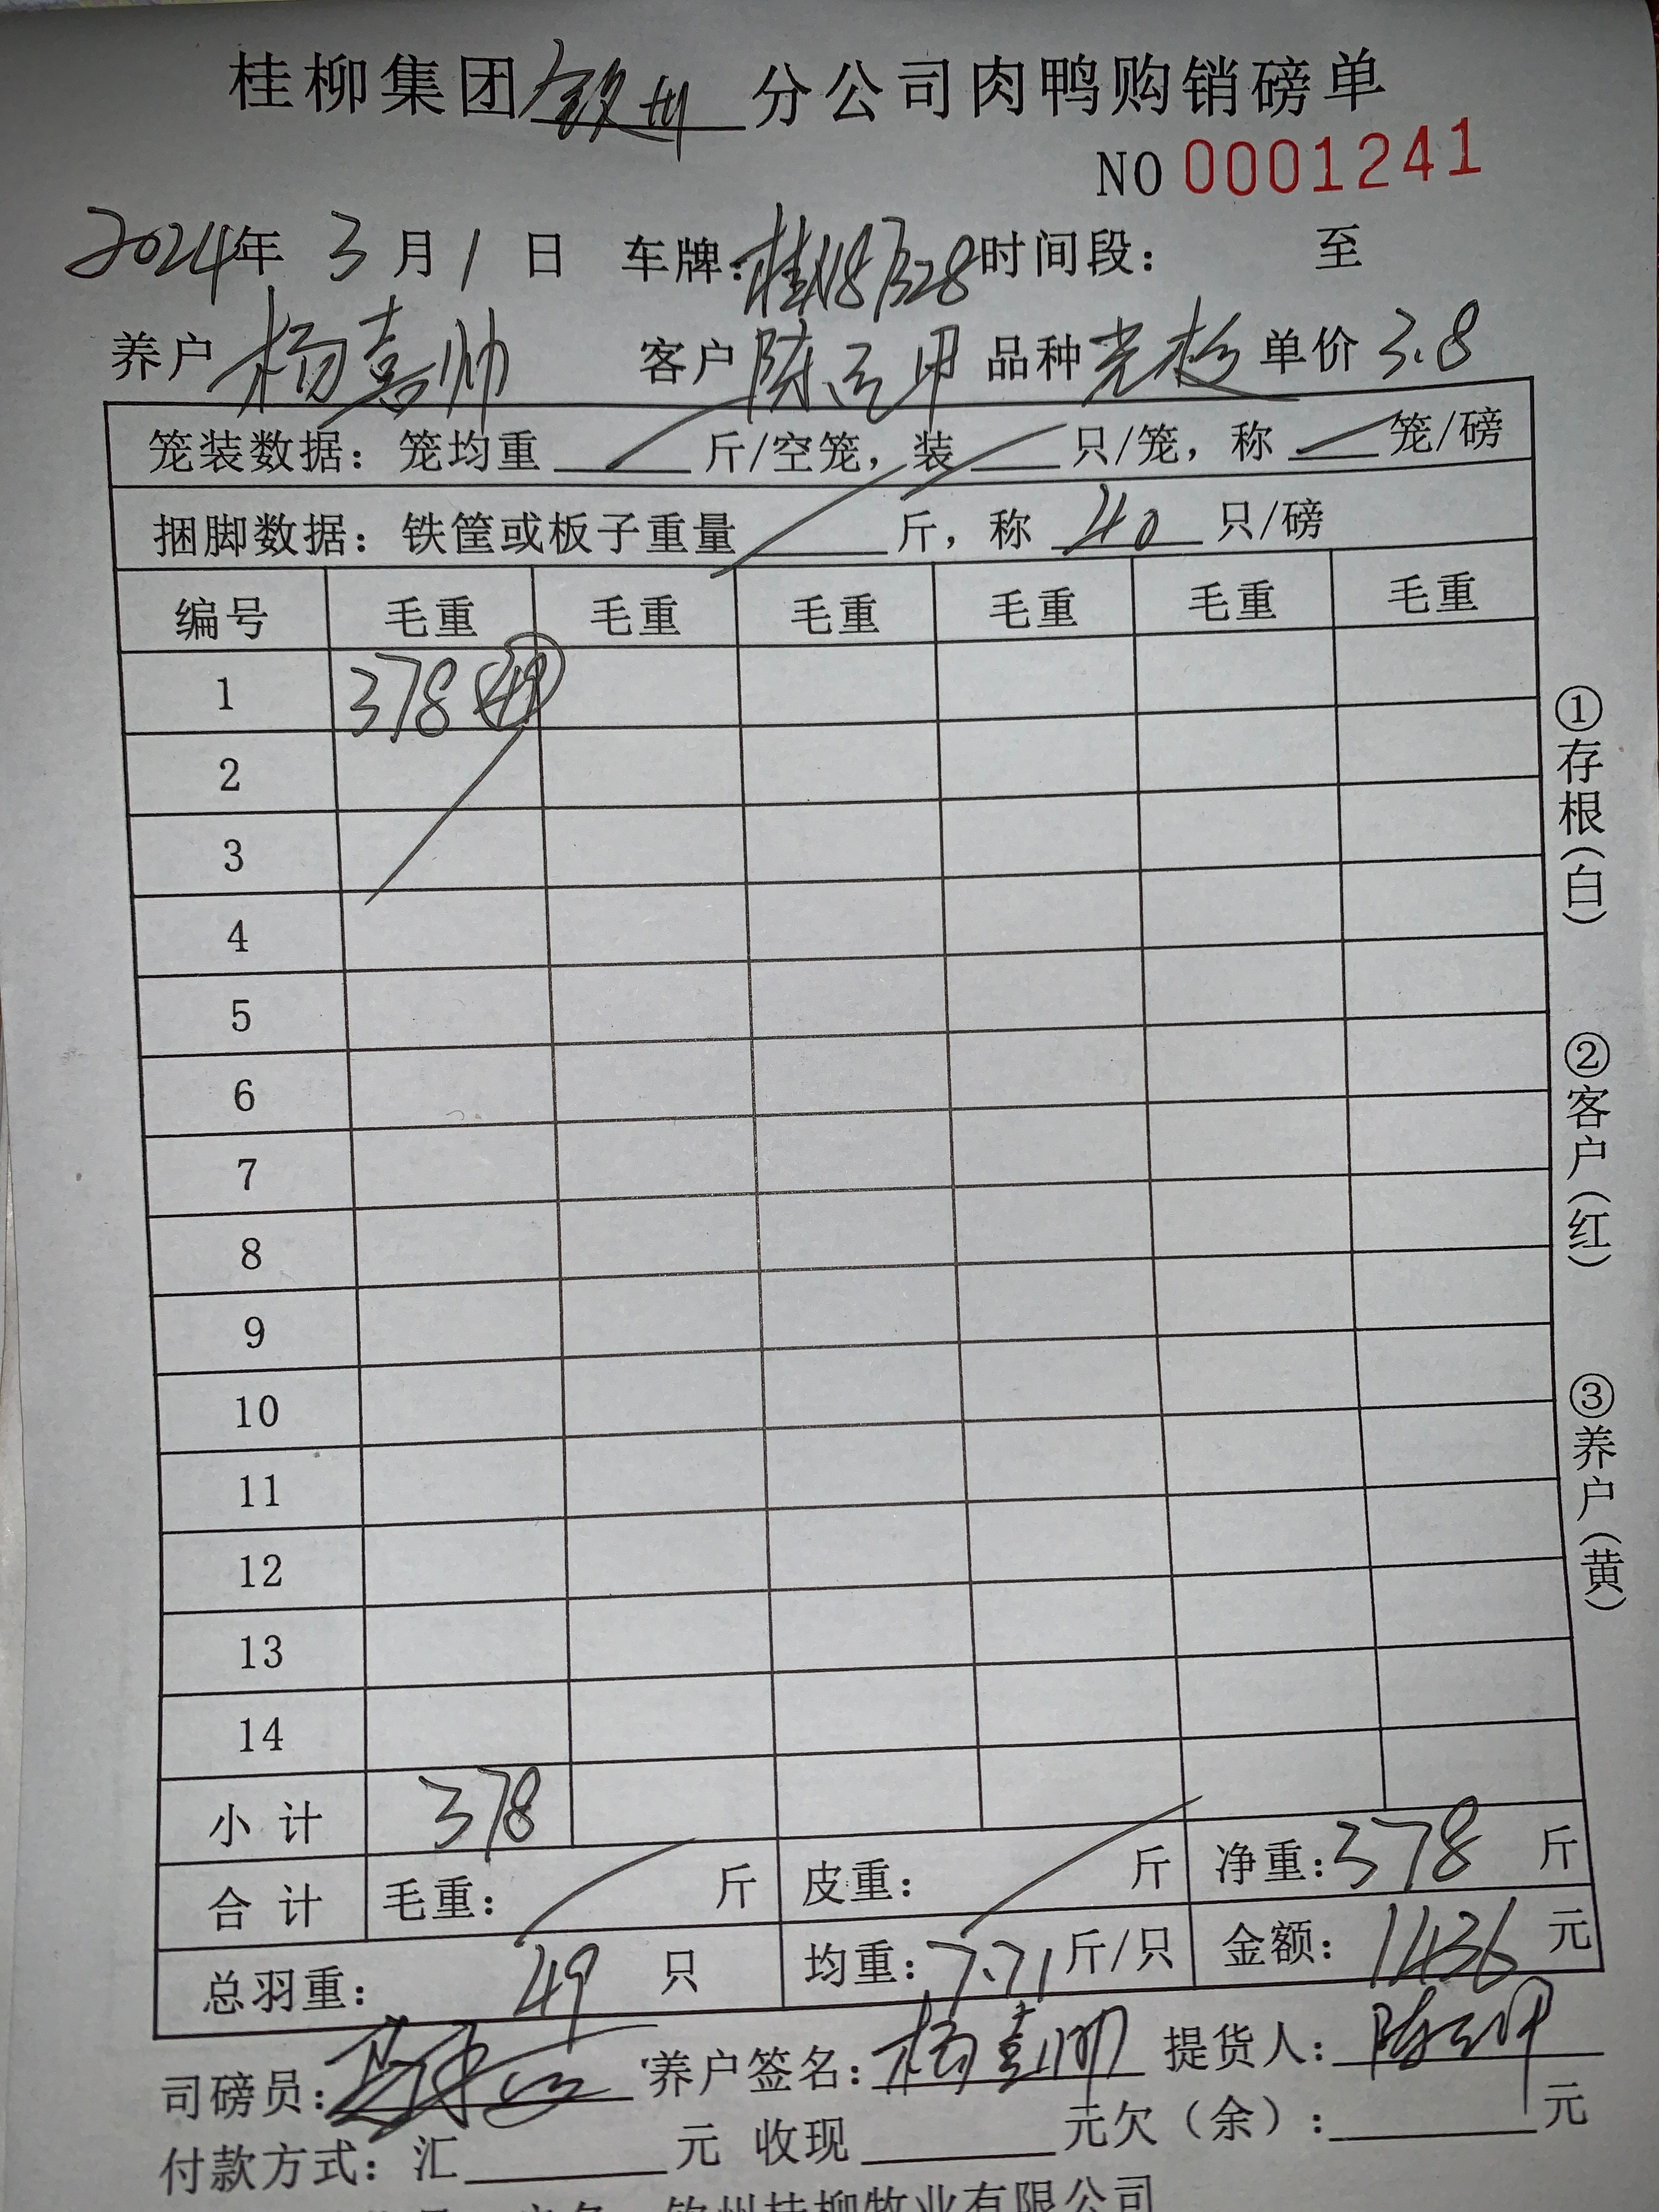 桂柳集团钦州分公司肉鸭购销磅单
NO 0001241
2024年 3月1日 车牌:桂N8B28时间段: 至
养户 杨喜帅 客户 陈 甲 品种 单价 3.8
笼装数据: 笼均重 斤/空笼, 装 只/笼, 称 笼/磅
捆脚数据: 铁筐或板子重量 斤, 称 40 只/磅
编号 毛重 毛重 毛重 毛重 毛重 毛重
1 378 49
2
3
4
5
6
7
8
9
10
11
12
13
14
小计 378
合计 毛重: 斤 皮重: 斤 净重:378 斤
总羽重: 49 只 均重:7.71斤/只 金额: 1436 元
司磅员: 养户签名:杨喜帅 提货人:
付款方式: 汇 元 收现 元欠(余): 元
钦州桂柳牧业有限公司
①存根(白)
②客户(红)
③养户(黄)